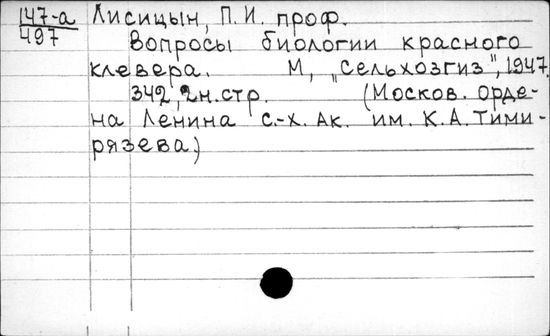 147-а Лисицын, П.И. проф.
497 Вопросы биологии красного
клевера. М, „Сельхозгиз", 1947.
342, 2н.стр. (Москов. Орде-
на Ленина с.-х. Ак. им. К.А.Тими-
рязева)